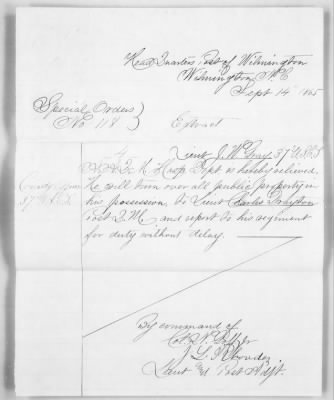 Head Quarters Post of Wilmington
Wilmington N.C
Sept 14 1865
Special Orders
No 118
Extract
Lieut J. W. Gray 37" U.S.C.T
Hosp Dept is hereby relieved,
He will turn over all public property in
his possession to Lieut Charles Drayton
Post Q.M. and report to his regiment
for duty without delay.
37" U.S.C.T.
By command of
Lieut Post Adjt.